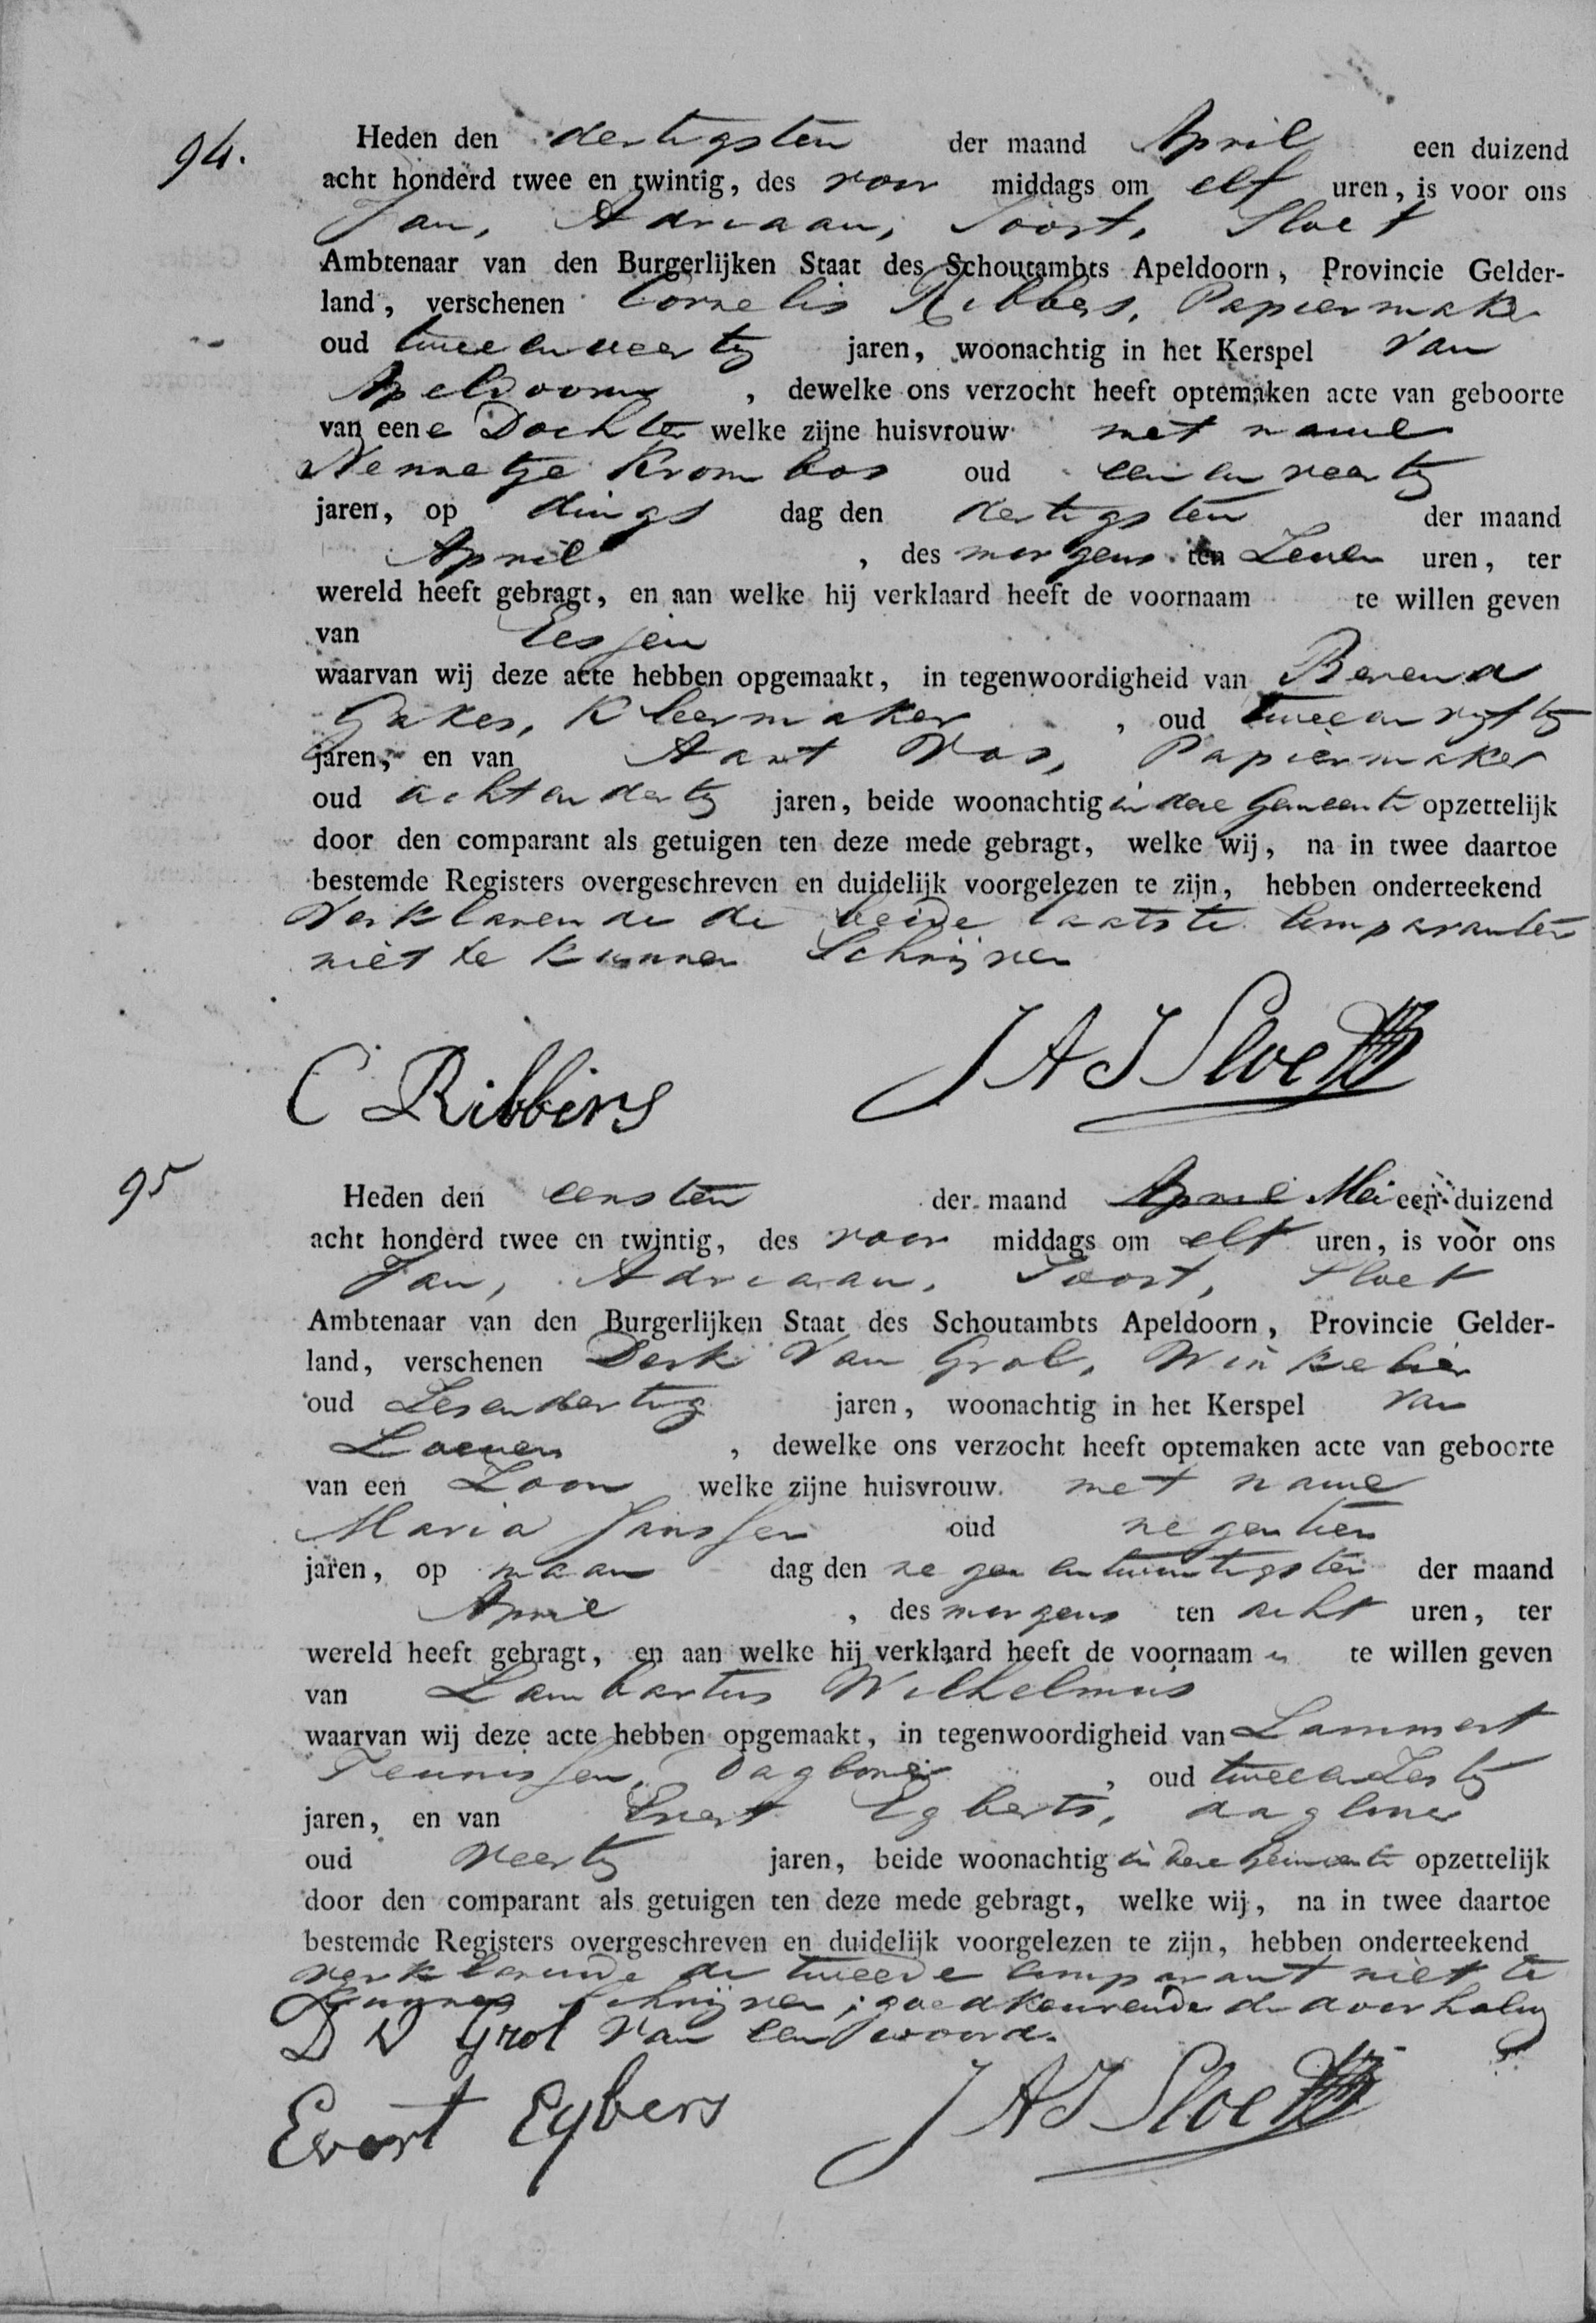 94.
Heden den dertigsten der maand April een duizend
acht honderd twee en twintig, des voor middags om elf uren, is voor ons
Jan, Adriaan, Joost, Sloet
Ambtenaar van den Burgerlijken Staat des Schoutambts Apeldoorn, Provincie Gelder-
land, verschenen Cornelis Ribbers, Papiermaker
oud twee en veertig jaren, woonachtig in het Kerspel van
Apeldoorn, dewelke ons verzocht heeft optemaken acte van geboorte
van eene Dochter welke zijne huisvrouw met name
Nennetje Krombos oud een en veertig
jaren, op dings dag den dertigsten der maand
April, des morgens ten Zeven uren, ter
wereld heeft gebragt, en aan welke hij verklaard heeft de voornaam te willen geven
van Eesjen
waarvan wij deze acte hebben opgemaakt, in tegenwoordigheid van Berend
Kleermaker, oud twee en vyftig
jaren, en van Aart Vos, Papiermaker
oud acht en dertig jaren, beide woonachtig in deze Gemeente opzettelijk
door den comparant als getuigen ten deze mede gebragt, welke wij, na in twee daartoe
bestemde Registers overgeschreven en duidelijk voorgelezen te zijn, hebben onderteekend
Verklarende de beide laatste Comparanten
niet te kunnen Schrijven
C Ribbers JAJ Sloet
95
Heden den eersten der maand April Mei een duizend
acht honderd twee en twintig, des voor middags om elf uren, is voor ons
Jan, Adriaan, Joost, Sloet
Ambtenaar van den Burgerlijken Staat des Schoutambts Apeldoorn, Provincie Gelder-
land, verschenen Derk Van Grol, Winkelier
oud Zes en dertig jaren, woonachtig in het Kerspel van
Loenen, dewelke ons verzocht heeft optemaken acte van geboorte
van een Zoon welke zijne huisvrouw. met name
Maria Janssen oud negentien
jaren, op maan dag den negen en twintigsten der maand
April, des morgens ten acht uren, ter
wereld heeft gebragt, en aan welke hij verklaard heeft de voornaam n te willen geven
van Lambartus Wilhelmus
waarvan wij deze acte hebben opgemaakt, in tegenwoordigheid van Lammert
Teunissen, Dagloner, oud twee en Zestig
jaren, en van Evert Egberts, dagloner
oud Veertig jaren, beide woonachtig in deze Gemeente opzettelijk
door den comparant als getuigen ten deze mede gebragt, welke wij, na in twee daartoe
bestemde Registers overgeschreven en duidelijk voorgelezen te zijn, hebben onderteekend
verklarende de tweede Comparant niet te
kunnen Schrijven; goedkeurende de doorhaling
D V Grol van een woord.
Evert Eybers JAJ Sloet